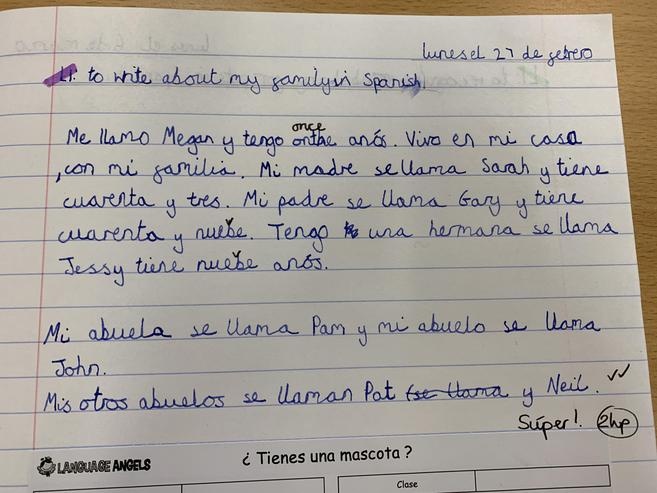 lunes el 27 de febrero
LI: to write about my family in Spanish.
once
Me llamo Megan y tengo onthe anós. Vivo en mi casa
, con mi familia. Mi madre se llama Sarah y tiene
cuarenta y tres. Mi padre se llama Gary y tiene
cuarenta y nueve. Tengo una hermana se llama
Jessy tiene nueve anós.
Mi abuela se llama Pam y mi abuelo se llama
John.
Mis otros abuelos se llaman Pat (se llama y Neil. ✓✓
Súper! 2hp
LANGUAGE ANGELS
¿ Tienes una mascota ?
Clase